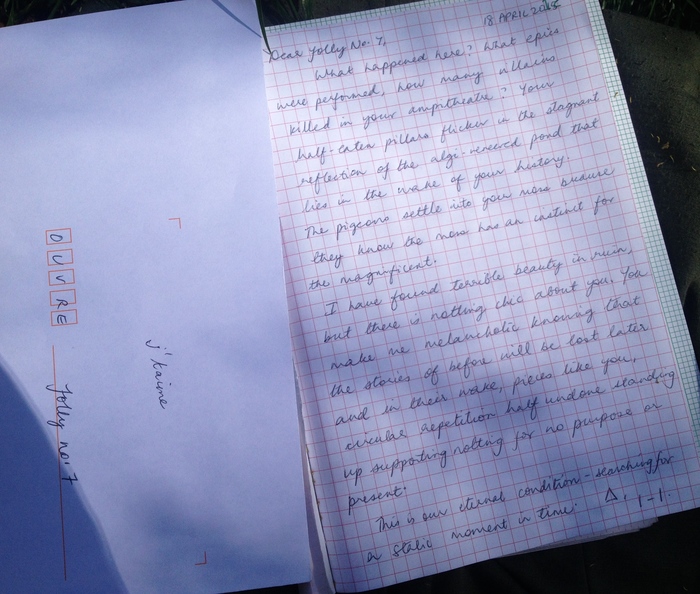 OUVRE
Jolly no. 7
j't'aime
18 APRIL 2015
Dear Jolly No. 7,
What happened here? What epics
were performed, how many villains
killed in your ampitheatre? Your
half-eaten pillars flicker in the stagnant
reflection of the algi-veneered pond that
lies in the wake of your history.
The pigeons settle into your moss because
they know the moss has an instinct for
the magnificent.
I have found terrible beauty in ruin,
but there is nothing chic about you. You
make me melancholic knowing that
the stories of before will be lost later
and in their wake, pieces like you,
circular repetition half undone standing
up supporting nothing for no purpose or
present.
This is our eternal condition - searching for
a static moment in time.